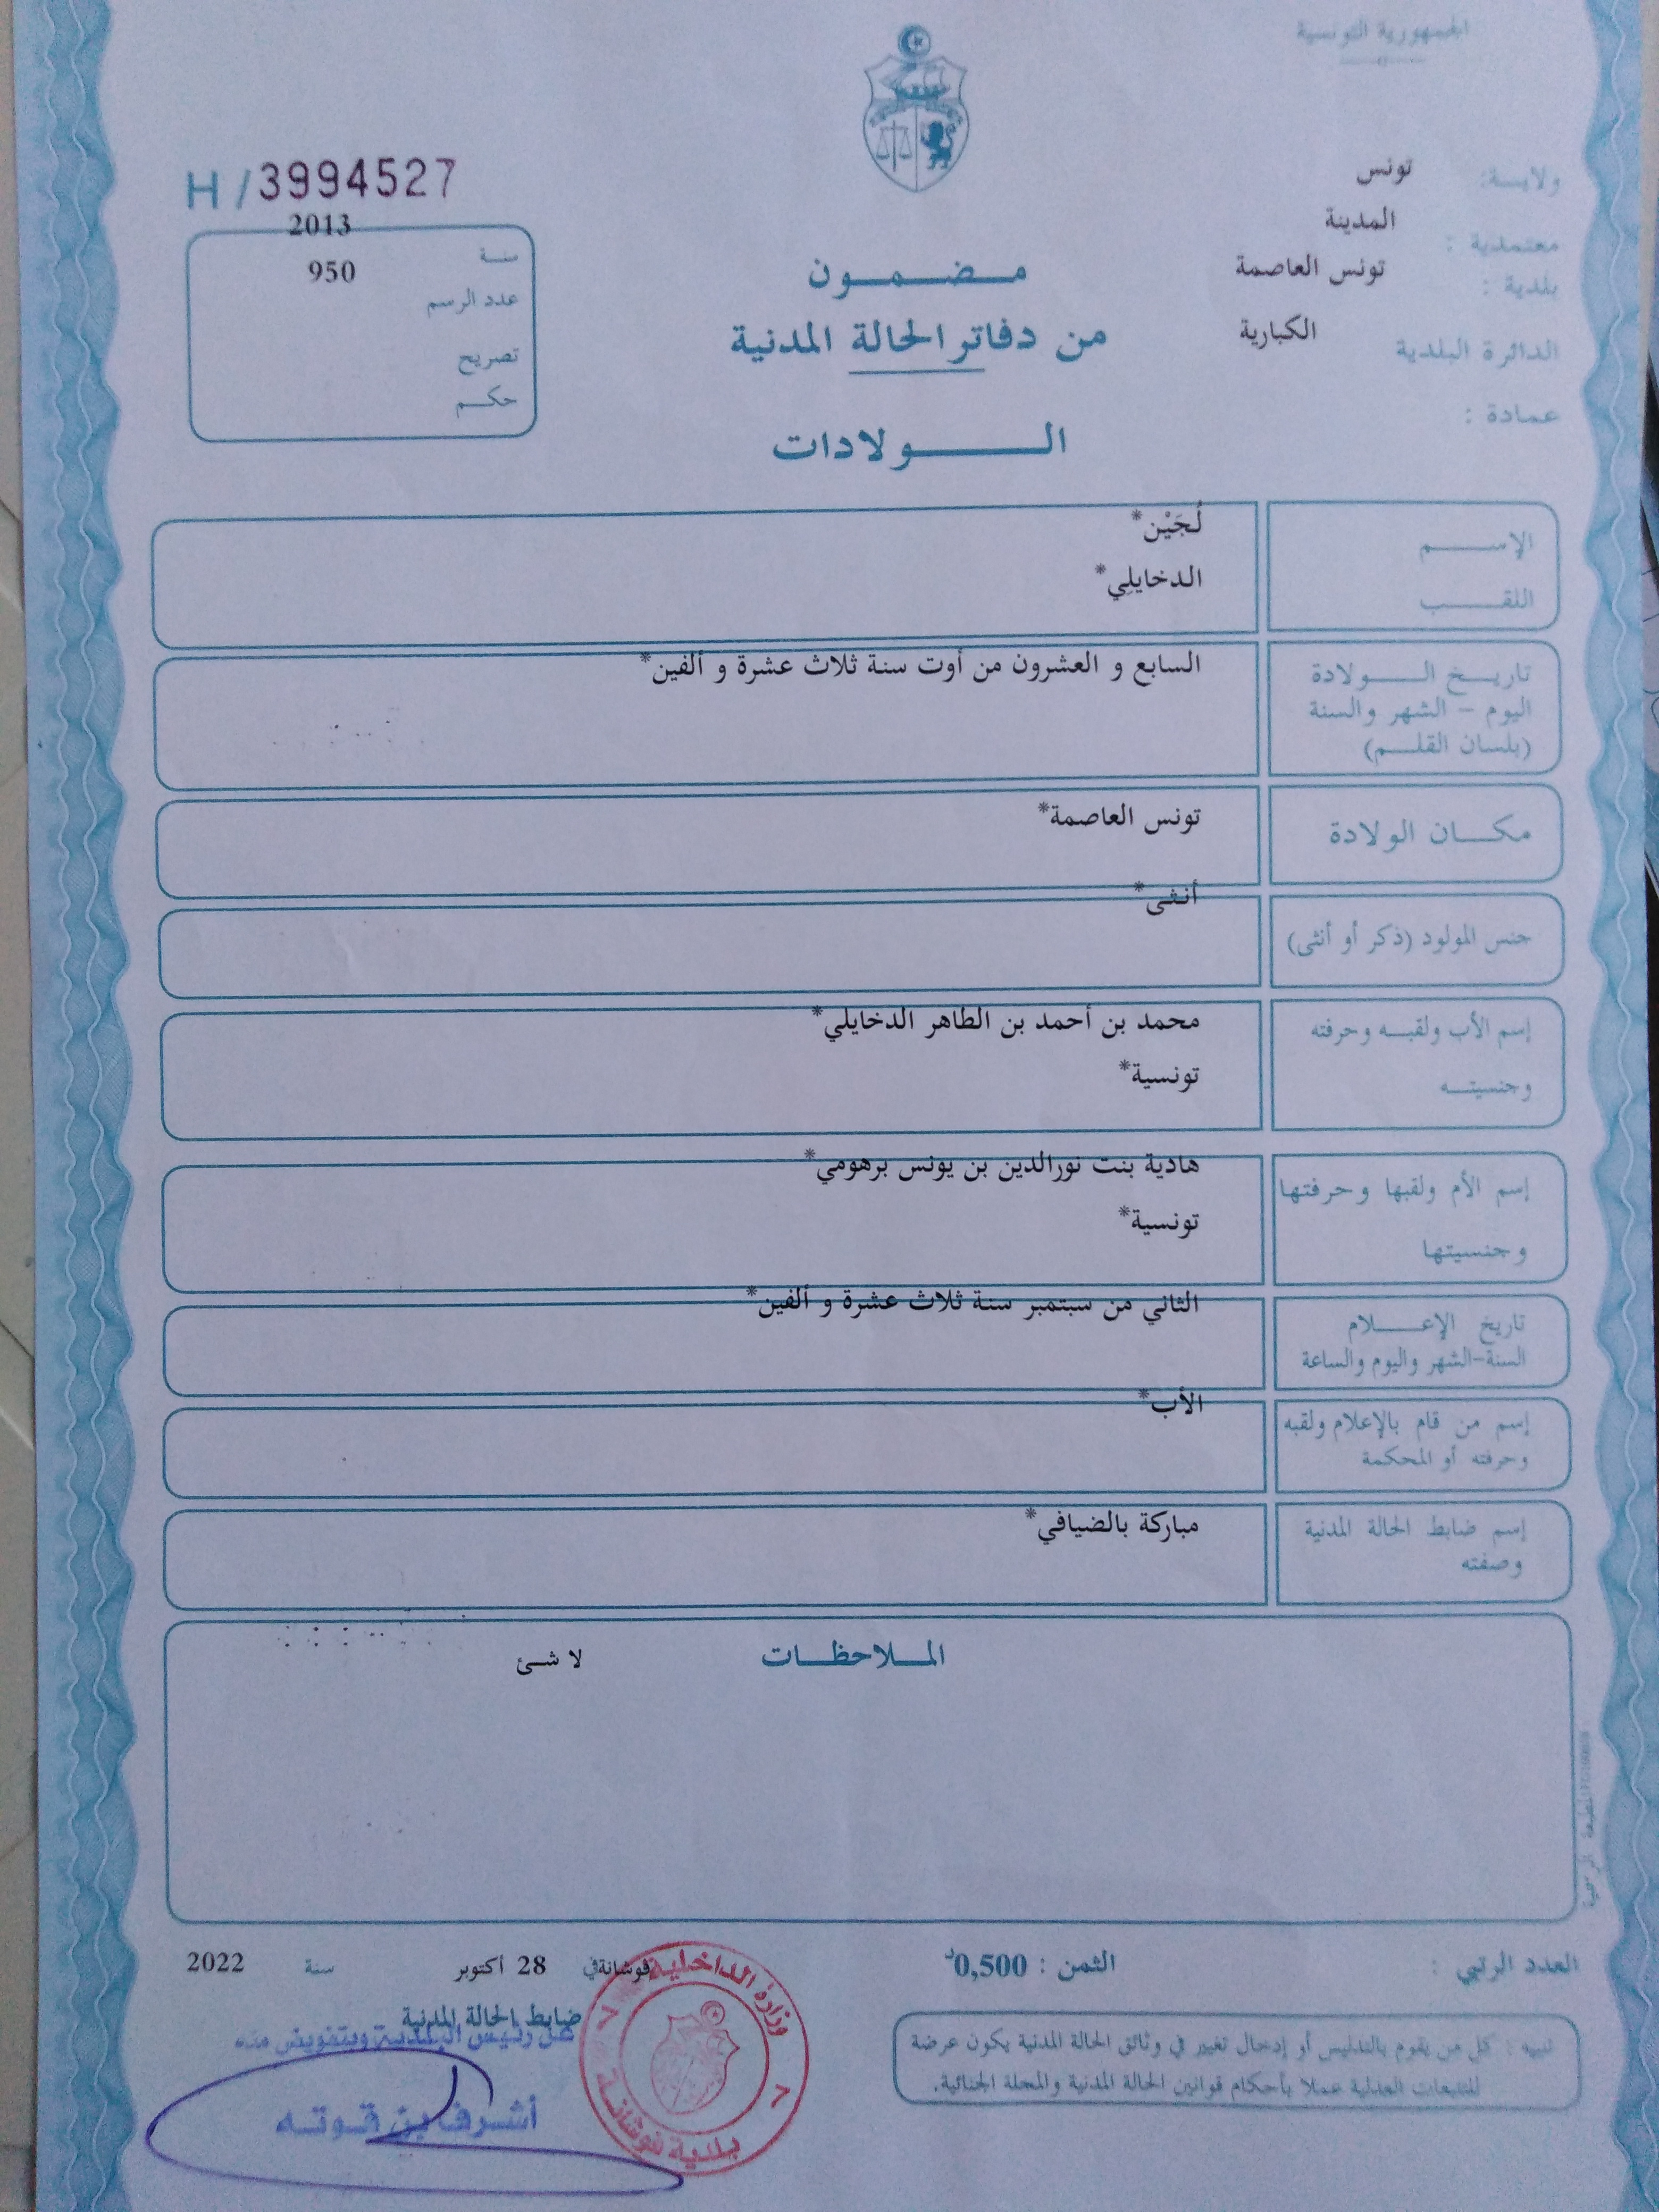 الجمهورية التونسية
ولايـــة: تونس
معتمدية : المدينة
بلدية : تونس العاصمة
الدائرة البلدية الكبارية
عمادة :
H/3994527
سنـة 2013
عدد الرسم 950
تصريح
حكـم
مـضـمـون
من دفاتر الحالة المدنية
الـــولادات
الإســـم لُجَيْن*
اللقـــب الدخايلِي*
تاريـخ الـــولادة السابع و العشرون من أوت سنة ثلاث عشرة و ألفين*
اليوم - الشهر والسنة
(بلسان القلـم)
مكـــان الولادة تونس العاصمة*
جنس المولود (ذكر أو أنثى) أنثى*
إسم الأب ولقبـه وحرفته محمد بن أحمد بن الطاهر الدخايلي*
وجنسيتـه تونسية*
إسم الأم ولقبها وحرفتها هادية بنت نورالدين بن يونس برهومي*
وجنسيتها تونسية*
تاريخ الإعـــلام الثاني من سبتمبر سنة ثلاث عشرة و ألفين*
السنة-الشهر واليوم والساعة
إسم من قام بالإعلام ولقبه الأب*
وحرفته أو المحكمة
إسم ضابط الحالة المدنية مباركة بالضيافي*
وصفته
المـلاحظـات لا شئ
العدد الرتبي :
الثمن : 0,500د
فوشانة في 28 أكتوبر سنة 2022
ضابط الحالة المدنية
عن رئيس البلدية وبتفويض منه
أشرف بن قوته
وزارة الداخلية
بلدية فوشانة
تنبيه : كل من يقوم بالتدليس أو إدخال تغيير في وثائق الحالة المدنية يكون عرضة
للتتبعات العدلية عملا بأحكام قوانين الحالة المدنية والمجلة الجنائية.